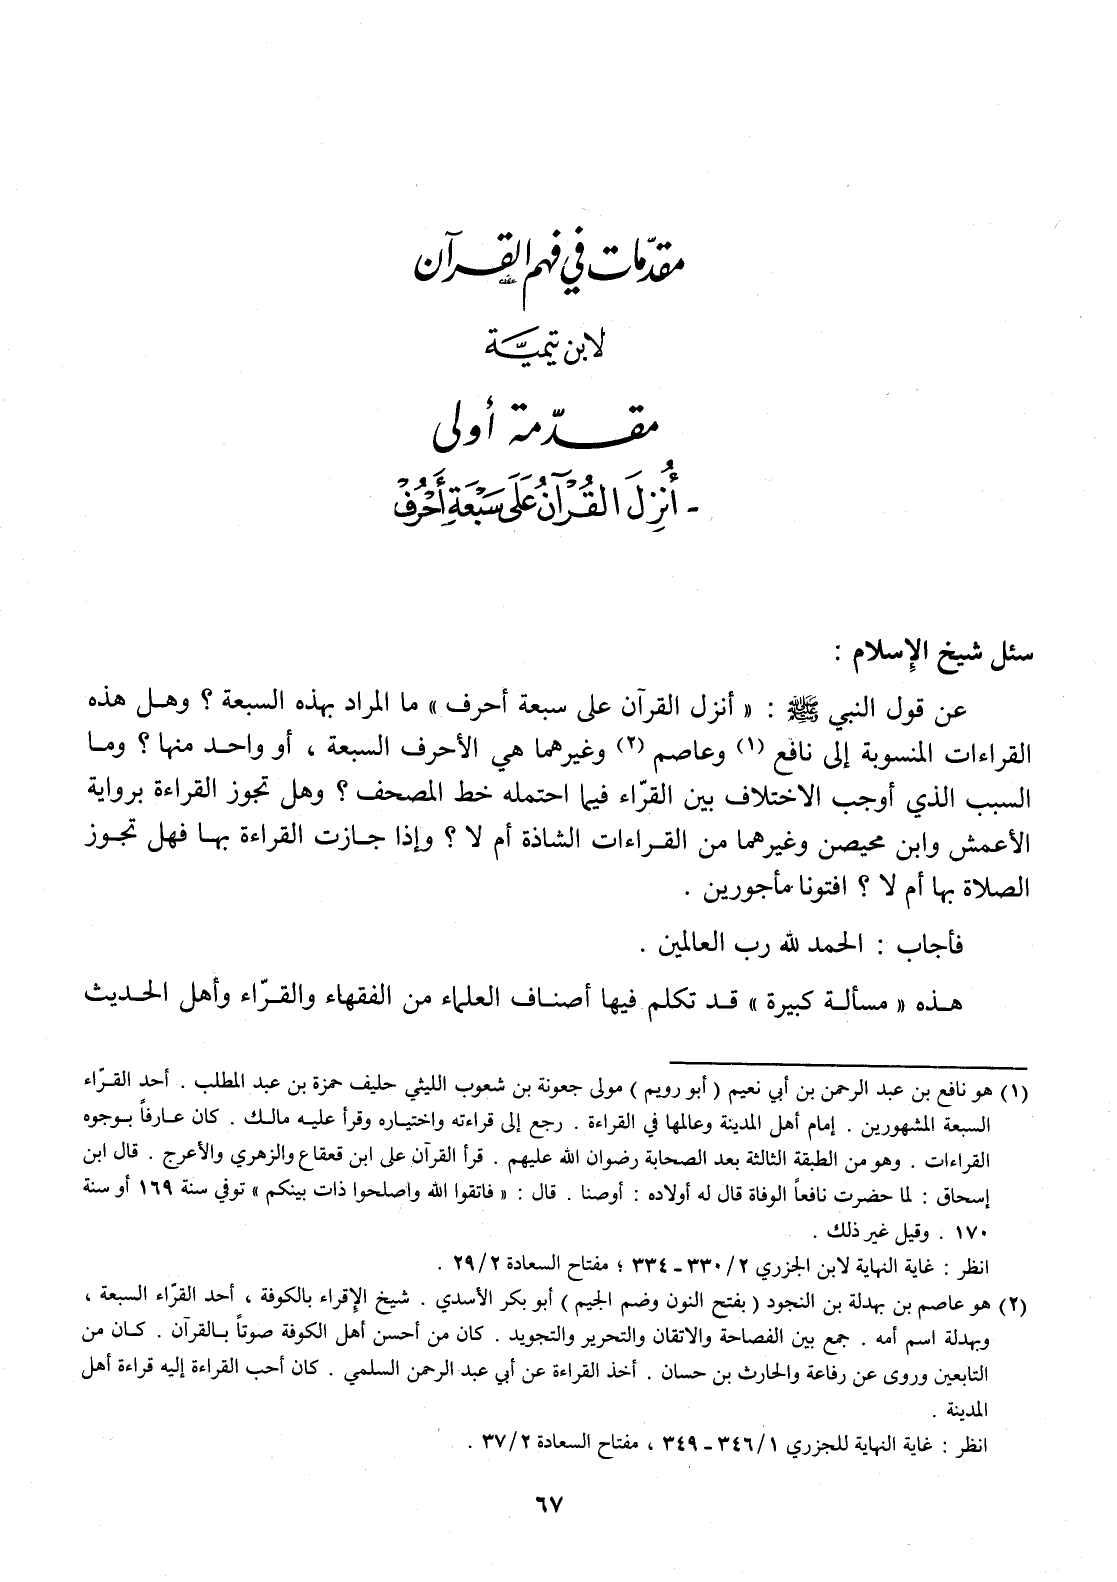 مقدّمات في فهم القرآن
لابن تيميّة
مقدّمة أولى
- أُنزِلَ القُرْآنُ عَلَى سَبْعَةِ أَحْرُفْ
سئل شيخ الإسلام :
عن قول النبي ﷺ : « أنزل القرآن على سبعة أحرف » ما المراد بهذه السبعة ؟ وهل هذه
القراءات المنسوبة إلى نافع (١) وعاصم (٢) وغيرهما هي الأحرف السبعة ، أو واحد منها ؟ وما
السبب الذي أوجب الاختلاف بين القرّاء فيما احتمله خط المصحف ؟ وهل تجوز القراءة برواية
الأعمش وابن محيصن وغيرهما من القراءات الشاذة أم لا ؟ وإذا جازت القراءة بها فهل تجوز
الصلاة بها أم لا ؟ افتونا مأجورين .
فأجاب : الحمد لله رب العالمين .
هذه « مسألة كبيرة » قد تكلم فيها أصناف العلماء من الفقهاء والقرّاء وأهل الحديث
(١) هو نافع بن عبد الرحمن بن أبي نعيم ( أبو رويم ) مولى جعونة بن شعوب الليثي حليف حمزة بن عبد المطلب . أحد القرّاء
السبعة المشهورين . إمام أهل المدينة وعالمها في القراءة . رجع إلى قراءته واختياره وقرأ عليه مالك . كان عارفاً بوجوه
القراءات . وهو من الطبقة الثالثة بعد الصحابة رضوان الله عليهم . قرأ القرآن على ابن قعقاع والزهري والأعرج . قال ابن
إسحاق : لما حضرت نافعاً الوفاة قال له أولاده : أوصنا . قال : « فاتقوا الله واصلحوا ذات بينكم » توفي سنة ١٦٩ أو سنة
١٧٠ . وقيل غير ذلك .
انظر : غاية النهاية لابن الجزري ٢/ ٣٣٠ - ٣٣٤ ؛ مفتاح السعادة ٢/ ٢٩ .
(٢) هو عاصم بن بهدلة بن النجود ( بفتح النون وضم الجيم ) أبو بكر الأسدي . شيخ الإقراء بالكوفة ، أحد القرّاء السبعة ،
وبهدلة اسم أمه . جمع بين الفصاحة والاتقان والتحرير والتجويد . كان من أحسن أهل الكوفة صوتاً بالقرآن . كان من
التابعين وروى عن رفاعة والحارث بن حسان . أخذ القراءة عن أبي عبد الرحمن السلمي . كان أحب القراءة إليه قراءة أهل
المدينة .
انظر : غاية النهاية للجزري ١/ ٣٤٦ - ٣٤٩ ، مفتاح السعادة ٢/ ٣٧ .
٦٧